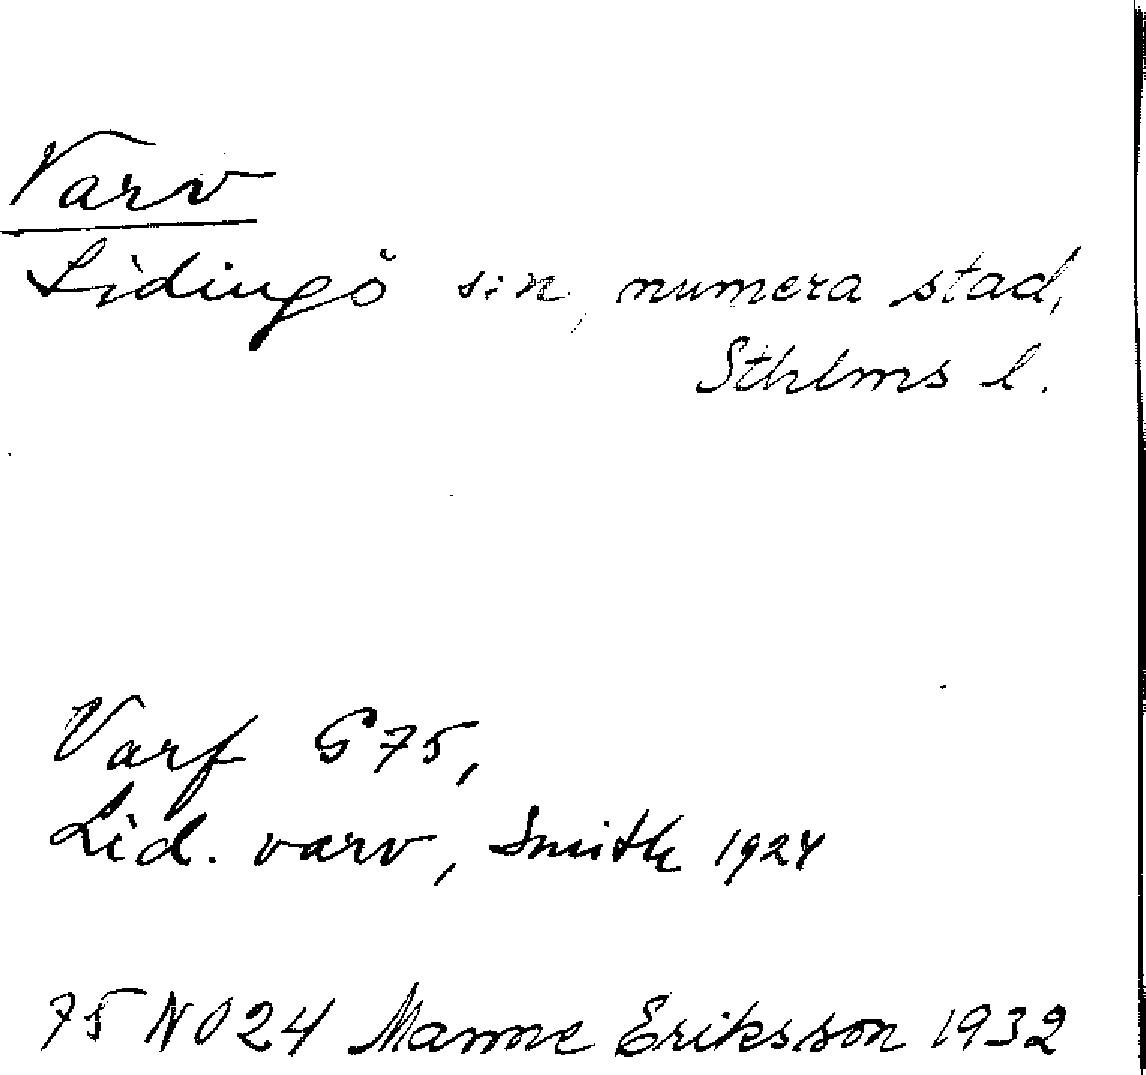 Varv
Lidingö s:n, numera stad,
Sthlms l.
Varf G 75,
Lid. varv, Smith 1924
75 NO 24 Manne Eriksson 1932